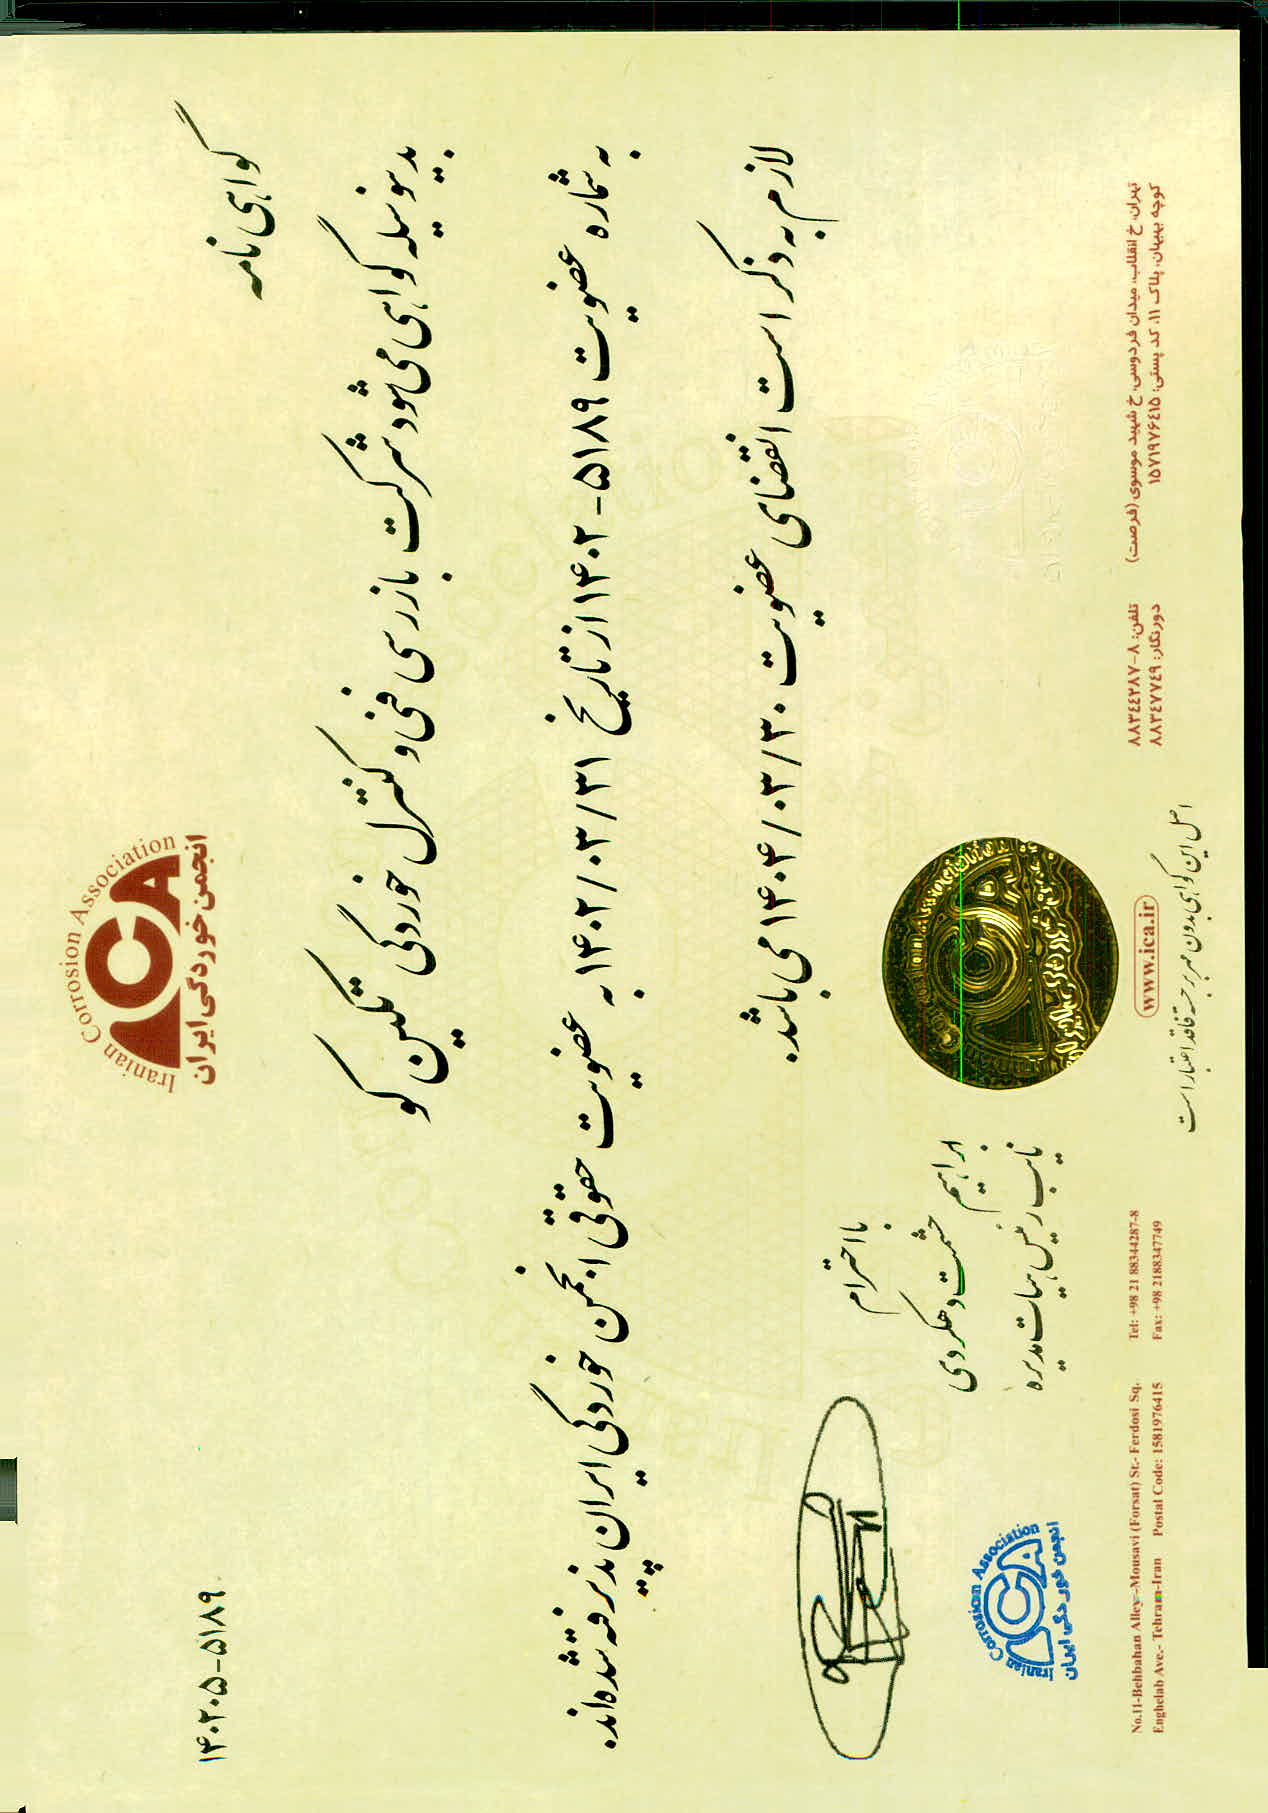 Iranian Corrosion Association
ICA
انجمن خوردگی ایران
گواهی نامه
۱۴۰۲۰۵-۵۱۸۹
بدینوسیله گواهی می شود شرکت بازرسی فنی و کنترل خوردگی تکین کو
به شماره عضویت ۵۱۸۹-۱۴۰۲ از تاریخ ۱۴۰۲/۰۳/۳۱ به عضویت حقوقی انجمن خوردگی ایران پذیرفته شده اند.
لازم به ذکر است انقضای عضویت ۱۴۰۴/۰۳/۳۰ می باشد.
با احترام
ابراهیم حشمت دهکردی
نایب رئیس هیات مدیره
Iranian Corrosion Association
ICA
انجمن خوردگی ایران
تهران، خ انقلاب، میدان فردوسی، خ شهید موسوی (فرصت)
کوچه بهبهان، پلاک ۱۱، کد پستی: ۱۵۷۱۹۷۶۴۱۵
تلفن: ۸-۸۸۳۴۴۲۸۷
دورنگار: ۸۸۳۴۷۷۴۹
www.ica.ir
اصل این گواهی بدون مهر برجسته فاقد اعتبار است
Tel: +98 21 88344287-8
Fax: +98 2188347749
No.11-Behbahan Alley-Mousavi (Forsat) St.- Ferdosi Sq.
Enghelab Ave.- Tehran-Iran Postal Code: 1581976415